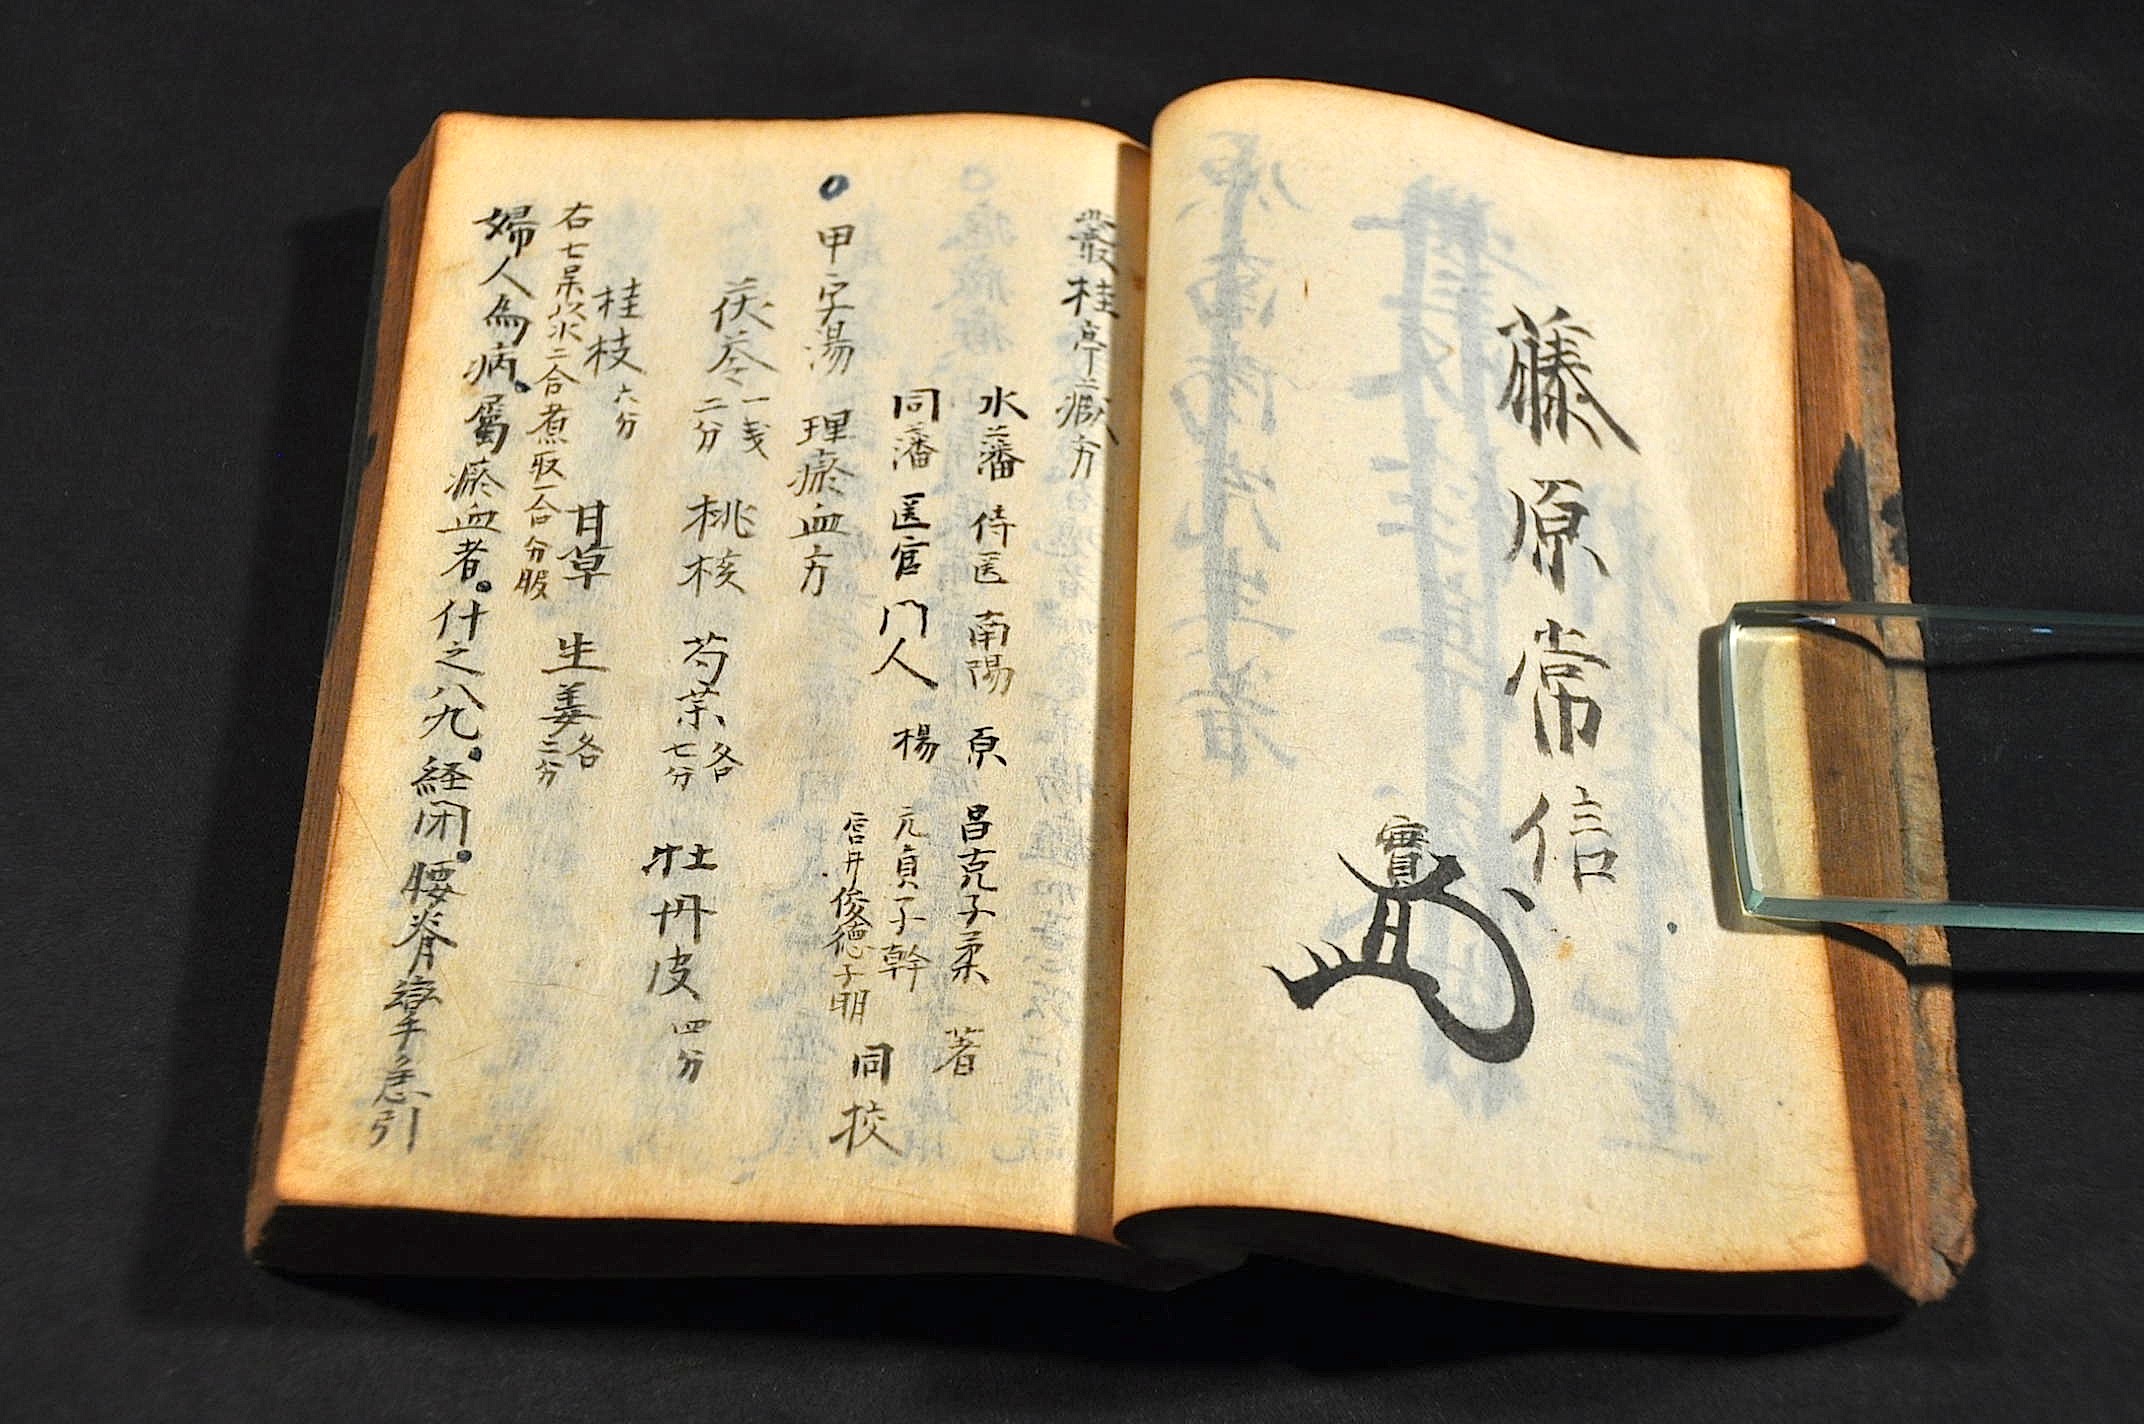 藤原常信
實
叢桂亭藏方
水藩侍医南陽原昌克子柔著
同藩医官門人楊元貞子幹
信丹俊德子明
同挍
甲字湯 理瘀血方
茯苓一戔二分 桃核 芍薬各七分 牡丹皮四分
桂枝六分 甘草 生姜各二分
右七味以水二合煮取一合分服
婦人為病。屬瘀血者。什之八九。経閉。腰脊攣急引